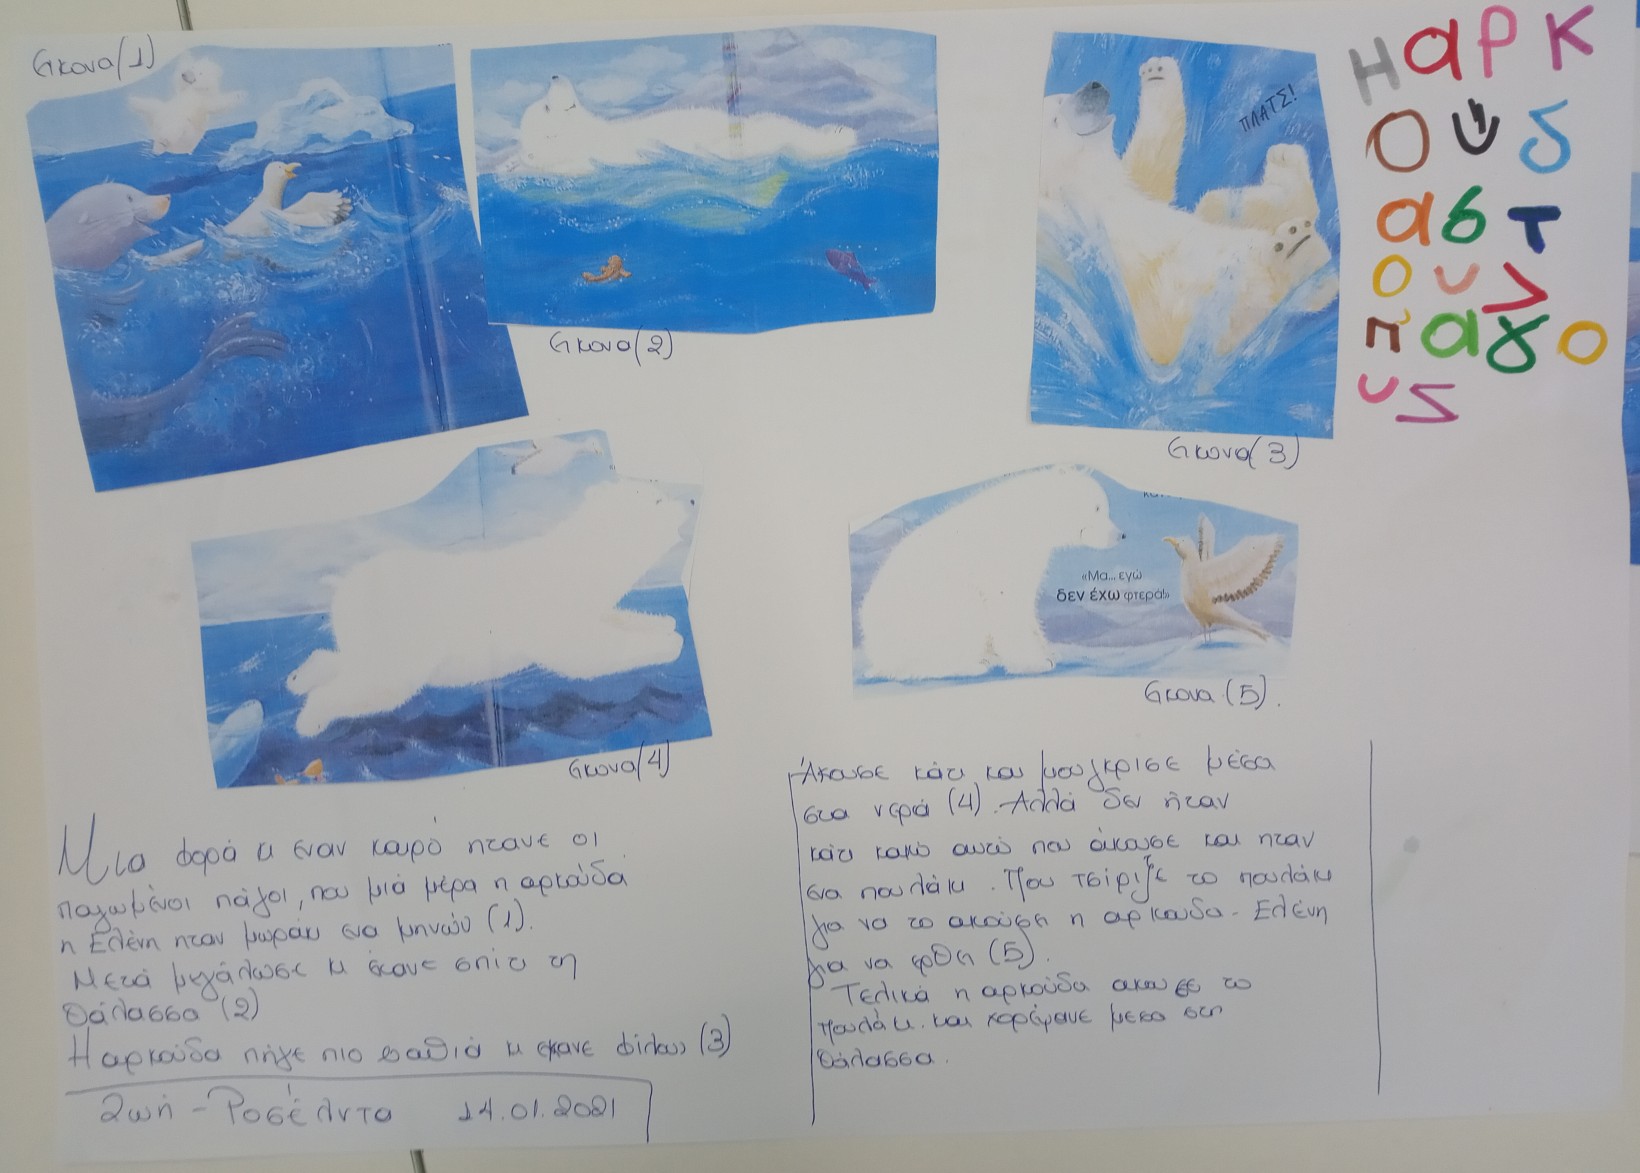 Εικονα(1)
Εικονα(2)
ΠΛΑΤΣ!
Εικονα(3)
Η αρκ
ουδ
α στ
ους
παγο
υς
Εικονα(4)
«Μα... εγώ
δεν έχω φτερά!»
Εικονα (5).
Μια φορά κι εναν καιρό ητανε οι
παγωμένοι πάγοι, που μιά μέρα η αρκούδα
η Ελένη ηταν μωράκι ενα μηνών (1).
Μετά μεγάλωσε κι έκανε σπίτι τη
θάλασσα (2)
Η αρκούδα πήγε πιο βαθιά κι εκανε φίλους (3)
Ζωή - Ροσέλντα 14.01.2021
Άκουσε κάτι και μουγκρισε μέσα
στα νερά (4). Αλλά δεν ήταν
κάτι κακό αυτό που άκουσε και ηταν
ενα πουλάκι. Που τσίριζε το πουλάκι
για να το ακούσει η αρκουδα - Ελένη
για να ερθει (5).
Τελικά η αρκούδα ακουσε το
πουλάκι και χορέψανε μεσα στη
θάλασσα.